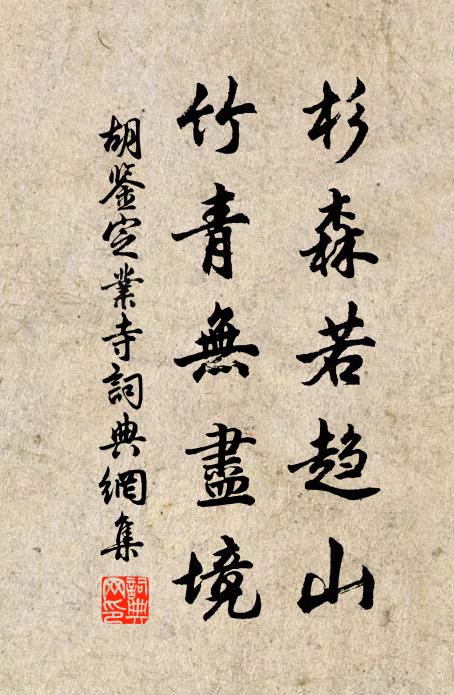 杉森若趋山
竹青無盡境
胡鉴定業寺詞典網集
詞典網印